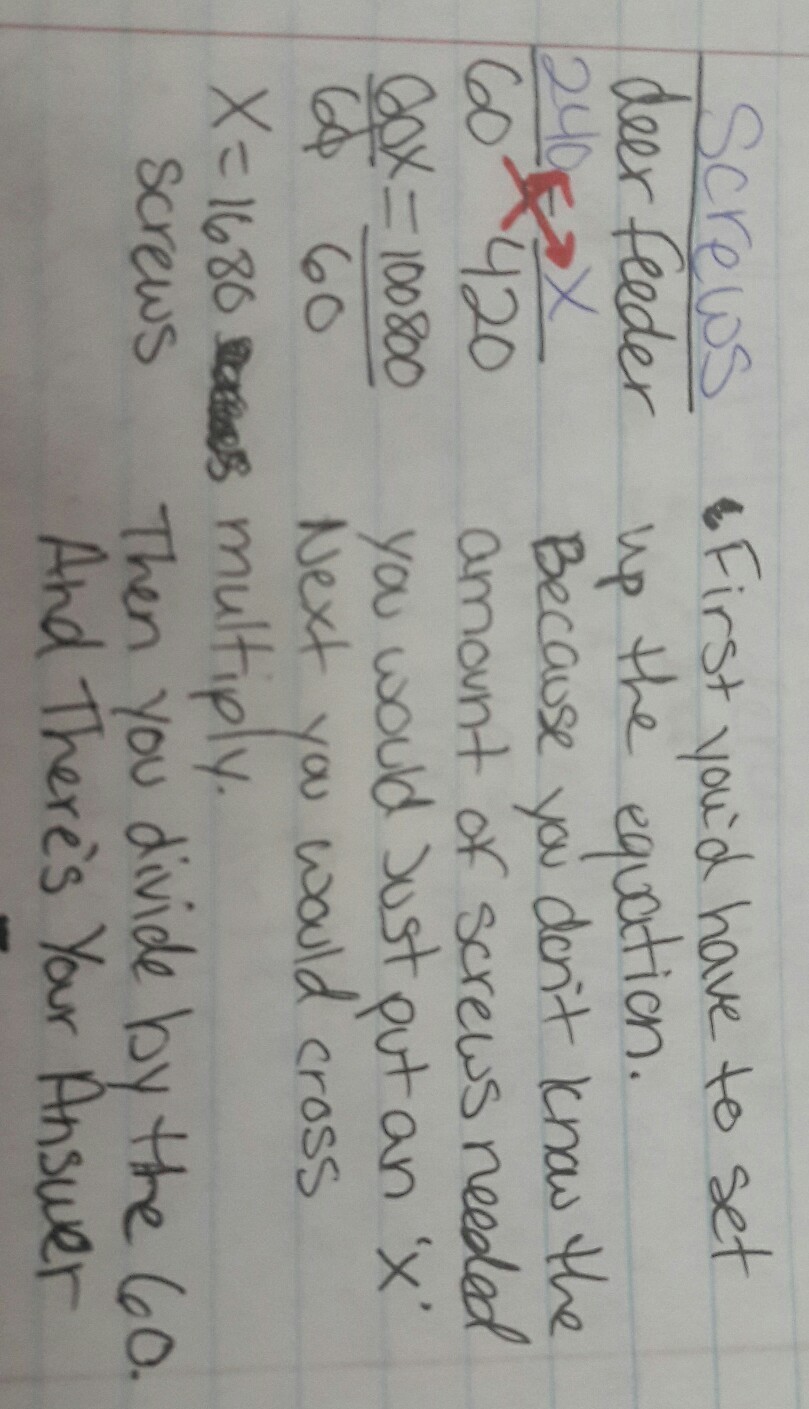 Screws
deer feeder
240 = x
60 420
60x = 100800
60 60
X = 1680
screws
First you'd have to set
up the equation.
Because you don't know the
amount of screws needed
you would Just put an 'x'
Next you would cross
multiply.
Then you divide by the 60.
And There's Your Answer